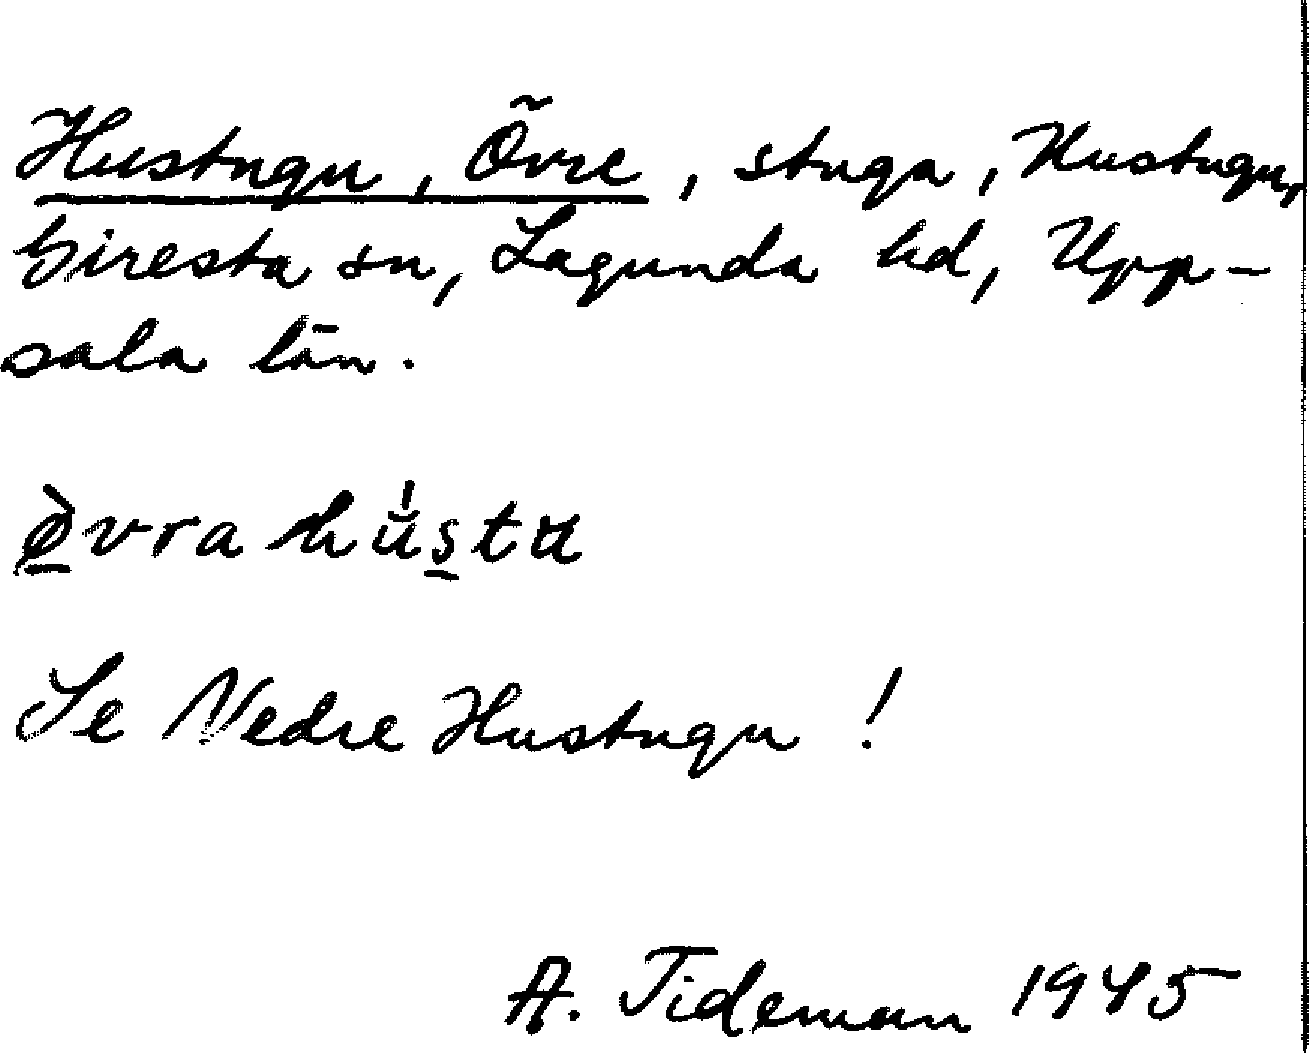 Hustugu, Övre, stuga, Hustugu,
Giresta sn, Lagunda hd, Upp-
sala län.
ø̠̀vra hu̇s̠tu
Se Nedre Hustugu!
A. Tideman 1945